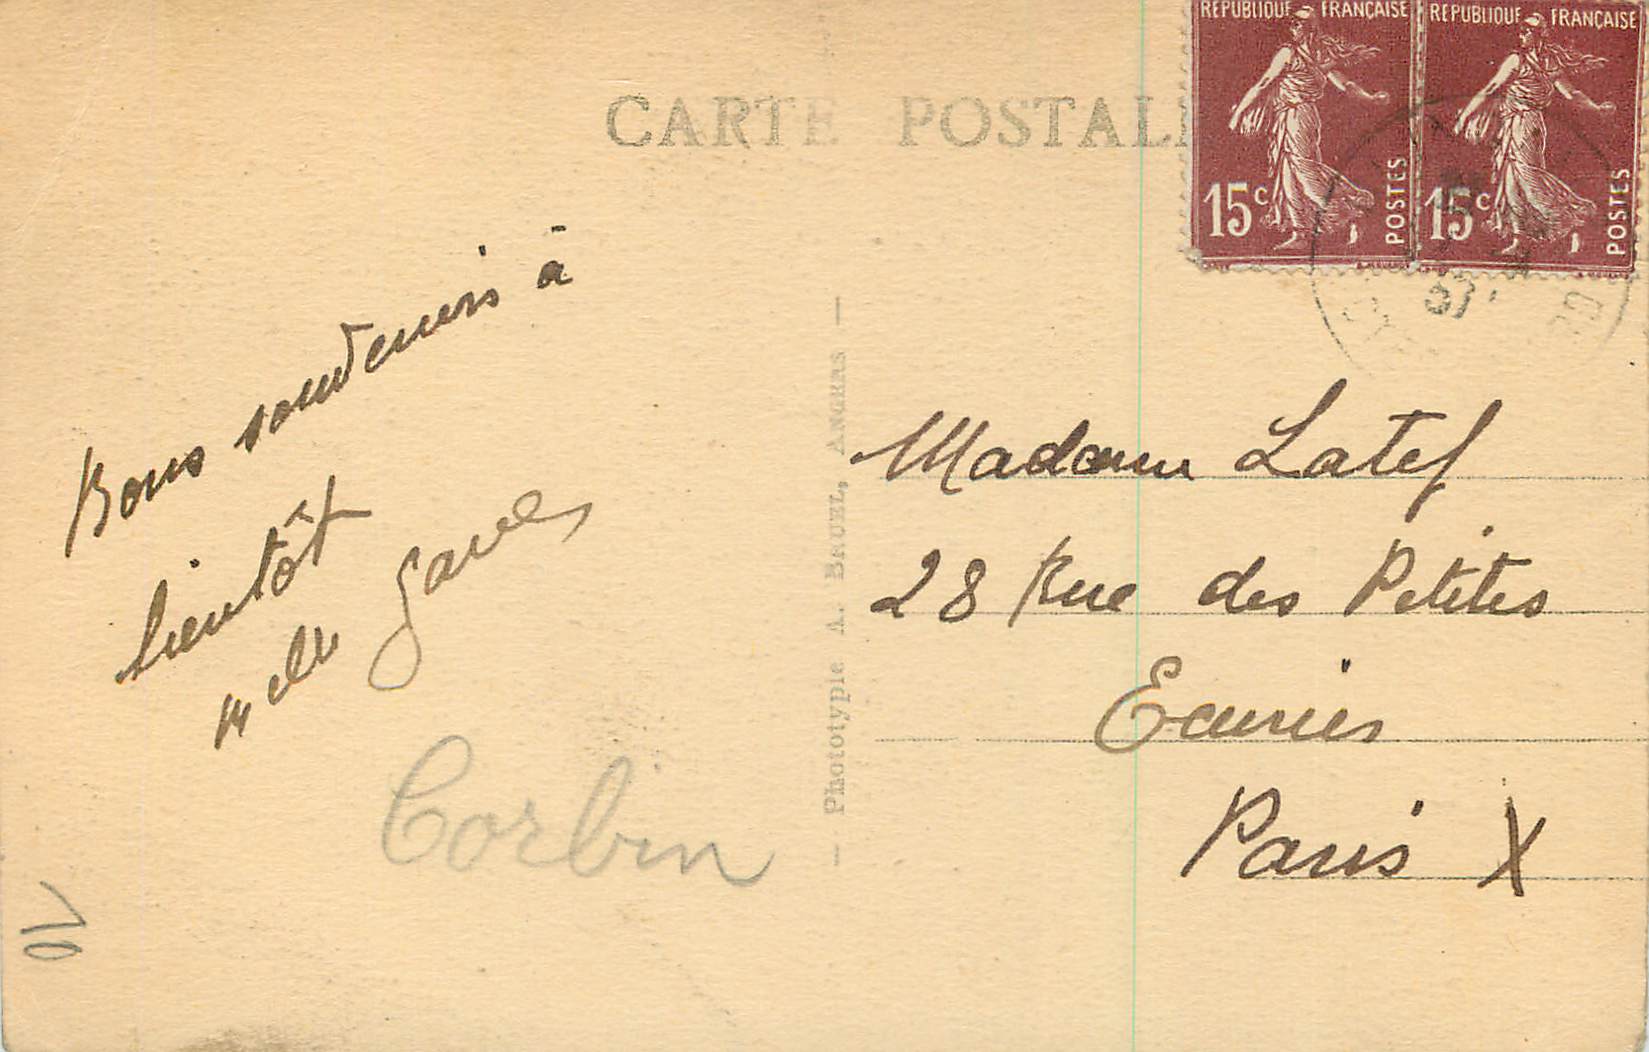 CARTE POSTALE
RÉPUBLIQUE FRANÇAISE
15c
POSTES
RÉPUBLIQUE FRANÇAISE
15c
POSTES
Bons souvenirs à
bientôt
Corbin
10
— Phototypie A. BRUEL, ANGERS —
Madame Latef
28 Rue des Petites
Ecuries
Paris X